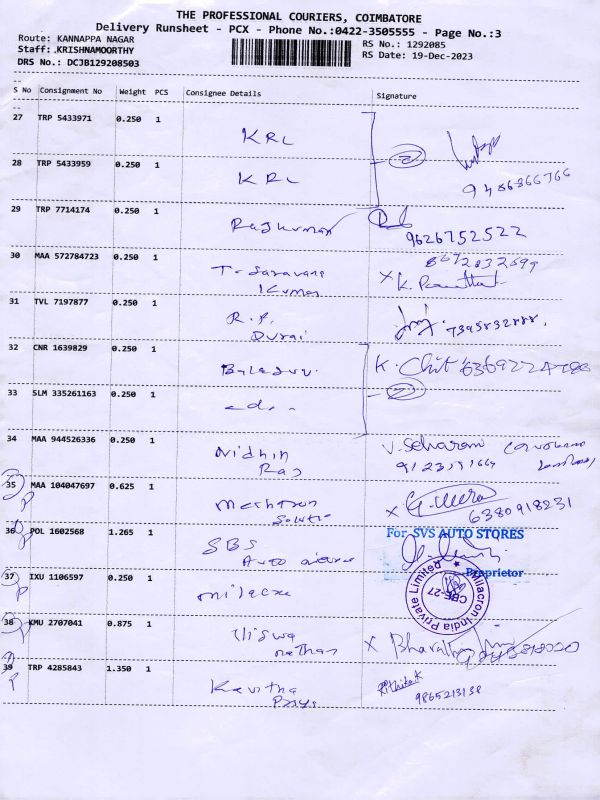 THE PROFESSIONAL COURIERS, COIMBATORE
Delivery Runsheet - PCX - Phone No.:0422-3505555 - Page No.:3
Route: KANNAPPA NAGAR
RS No.: 1292085
Staff: KRISHNAMOORTHY
RS Date: 19-Dec-2023
DRS No.: DCJB129208503
S No Consignment No Weight PCS Consignee Details Signature
27 TRP 5433971 0.250 1 KRL
28 TRP 5433959 0.250 1 KRL
2
9486866766
29 TRP 7714174 0.250 1 Rajkumar
9626752522
30 MAA 572784723 0.250 1 T-Saravana
Kumar
8672832599
31 TVL 7197877 0.250 1 R.P.
Durai
7395832888.
32 CNR 1639829 0.250 1 K. Chit
33 SLM 335261163 0.250 1
2
34 MAA 944526336 0.250 1 Nidhin
Raj
35 MAA 104047697 0.625 1
P
X G. Meera
6380918231
36 POL 1602568 1.265 1 SBS
Auto
P
For SVS AUTO STORES
Proprietor
37 IXU 1106597 0.250 1 milacron
P
Milacron India Private Limited
CBE-27
38 KMU 2707041 0.875 1 Viswa
nathan
P
X Bharath
39 TRP 4285843 1.350 1 Kavitha
Priya
P
Rithika K
9865213138